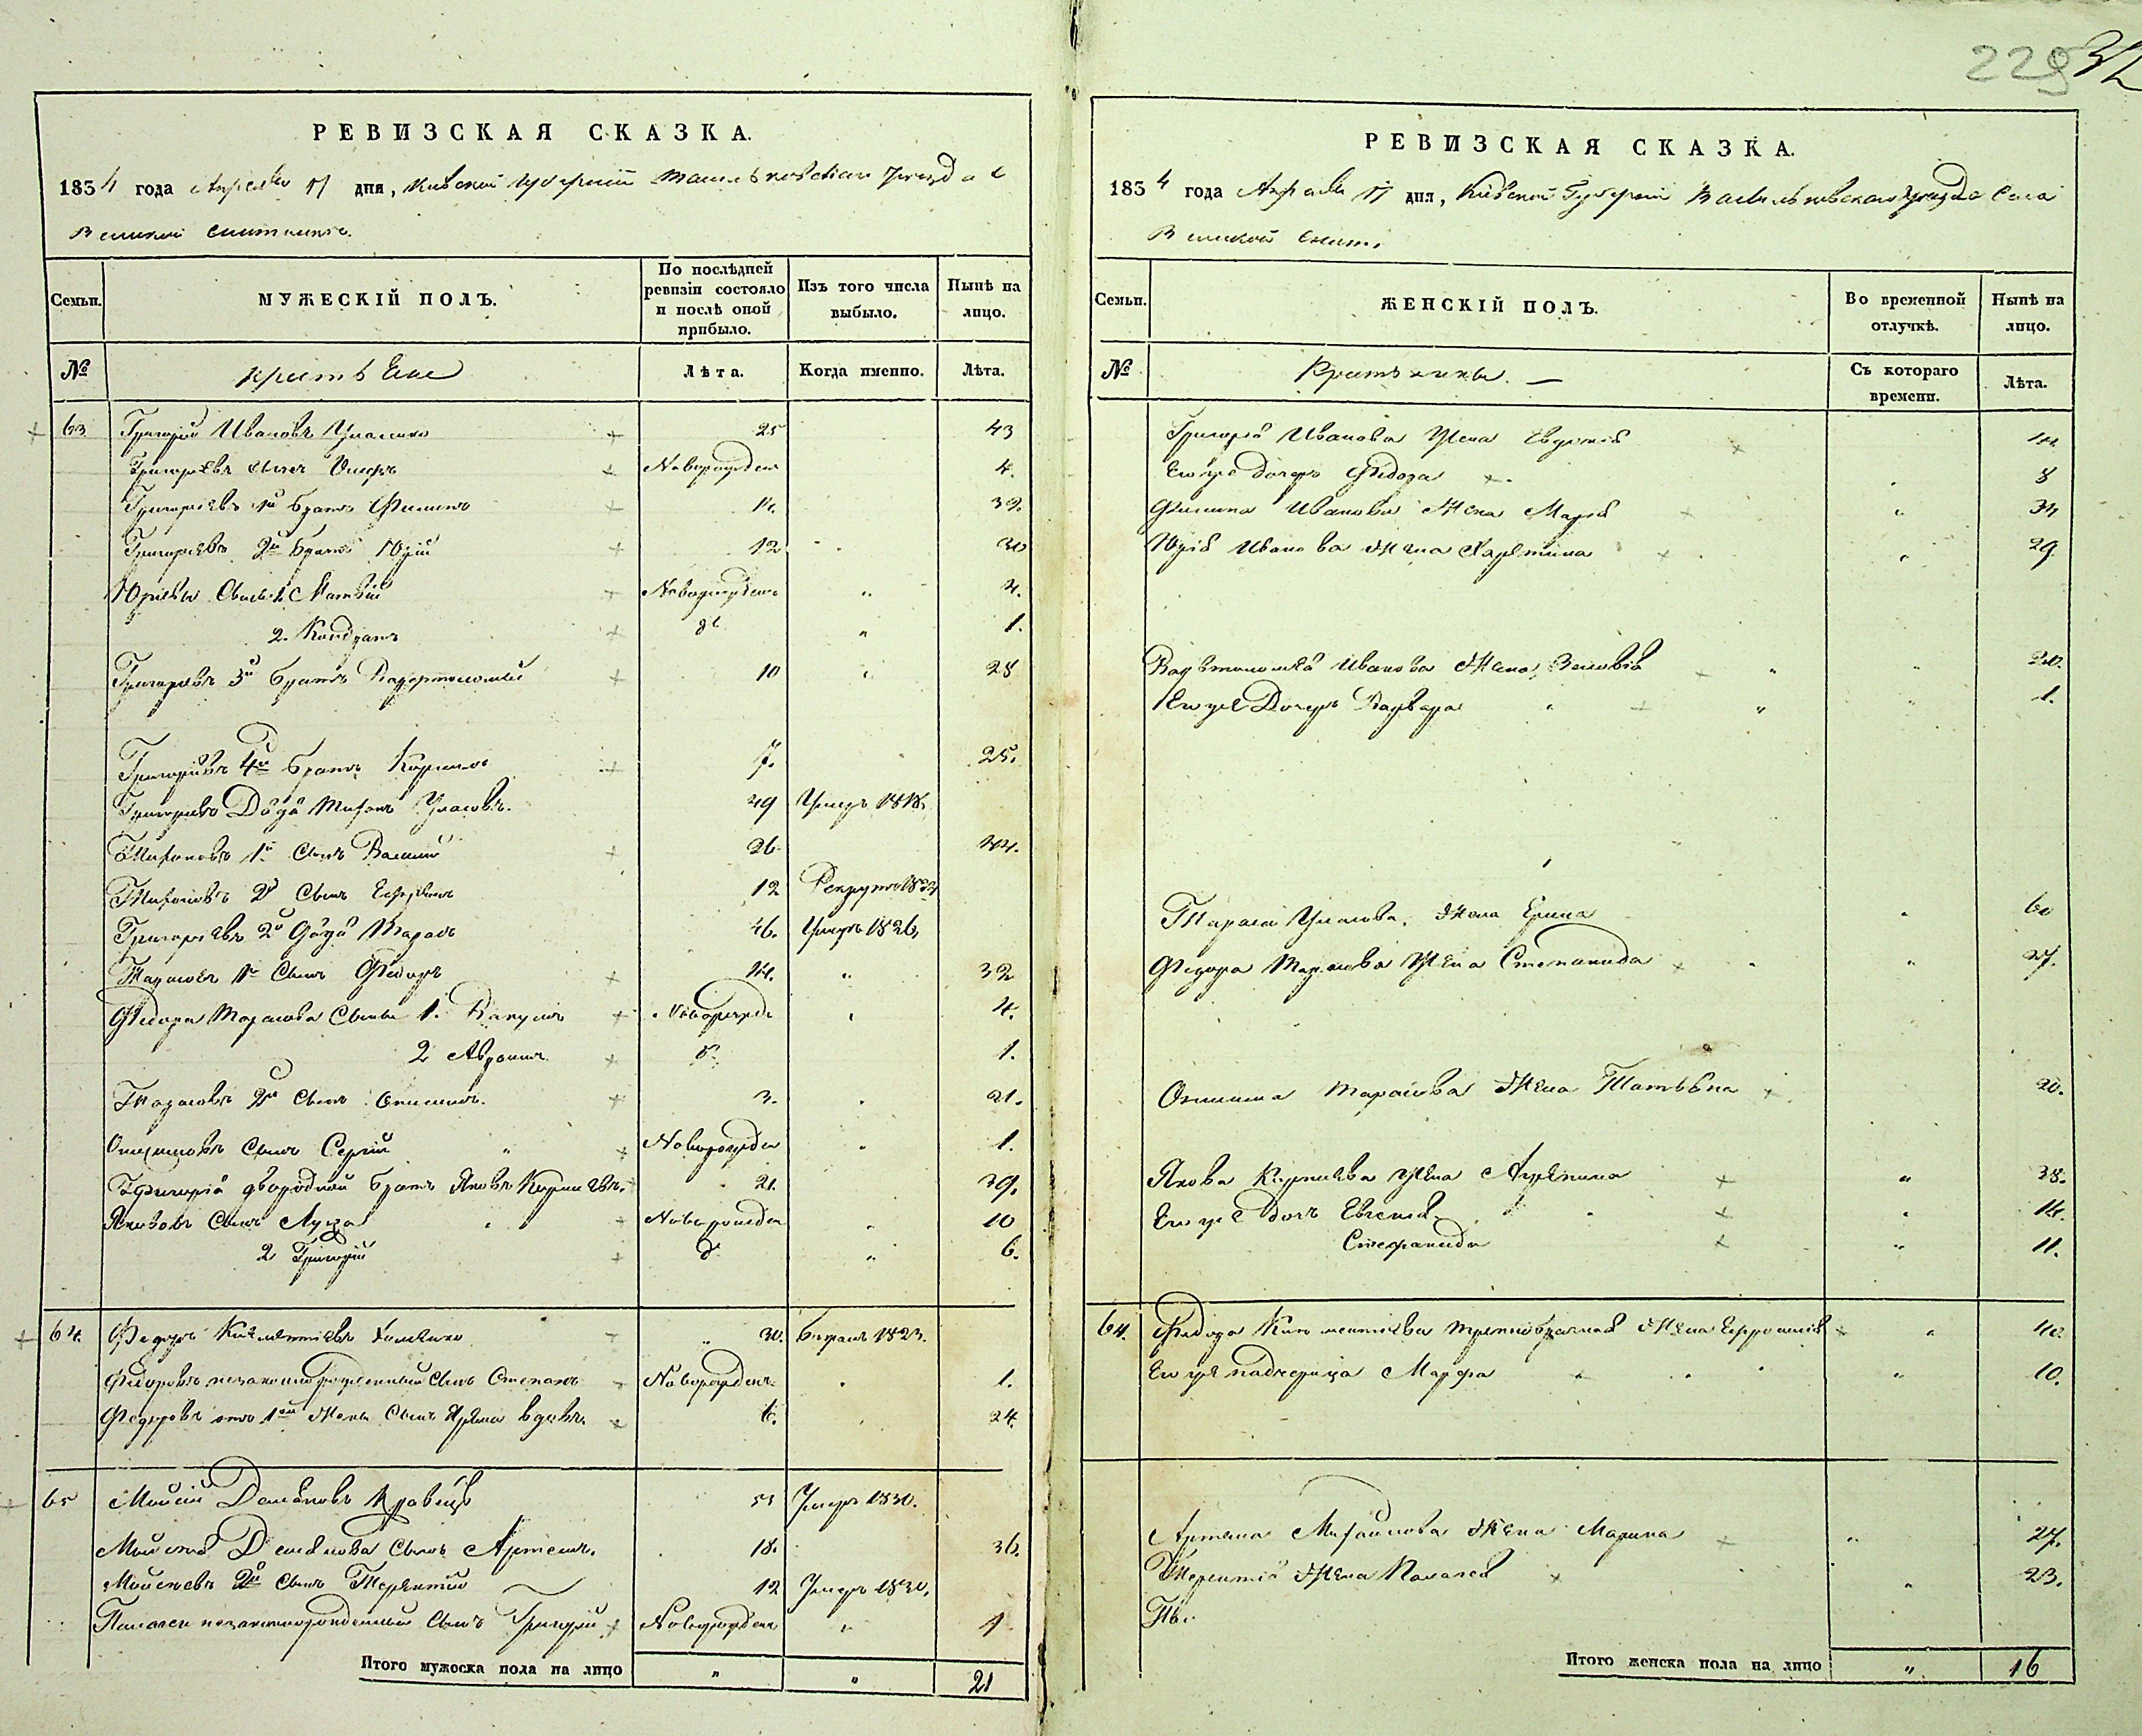 229
32
РЕВИЗСКАЯ СКАЗКА.
1834 года Апреля 17 дня, Киевской Губернии Васильковского уезда с
Великой Снитинки.
Семьи. МУЖЕСКІЙ ПОЛЪ. По послѣдней ревизіи состояло и послѣ оной прибыло. Изъ того числа выбыло. Нынѣ на лицо.
№ Крестьяне Лѣта. Когда именно. Лѣта.
63 Григорій Ивановъ 25 43
Григорьевъ сынъ Новорожден 4.
Григорьевъ 1й братъ Филипъ 14. 32.
Григорьевъ 2й братъ Юрій 12 30
Юрьевы сыны 1. Матвій Новорожден " 4.
2. Кондратъ " 1.
Григорьевъ 3й братъ Варфоломей 10 " 28
Григорьевъ 4й братъ Кирило 7. 25.
Григорьевъ Дядя Тихонъ 49 Умеръ 1818.
Тихоновъ 1й сынъ Василій 26. 44.
Тихоновъ 2й сынъ Ефремъ 12 Рекрутъ
Григорьевъ 2й дядя Тарасъ 46. Умеръ 1826.
Тарасовъ 1й сынъ Федоръ 14. " 32
Федора Тарасова сыны 1. Новорожде 4.
2 Авраамъ 1.
Тарасовъ 2й сынъ Онисимъ. 3. 21.
Онисимовъ сынъ Сергій " Новорожден " 1.
Григорія двородный братъ Яковъ 21. 39.
Якововъ сынъ Лука Новорожден 10
2 Григорій д " 6.
64. Федоръ 30. Бѣжалъ 1823.
Федоровъ незаконнорожденный сынъ Степанъ Новорожден 1.
Федоровъ отъ 1ой жены сынъ Ярема вдовъ. 6. 24.
65 Моисій Демяновъ Кравецъ 53 Умеръ 1830.
Моисея Демянова сынъ Артемъ. 18. 36.
Моисеевъ 2й сынъ Терентій 12 Умеръ 1830.
Палагеи незаконнорожденный сынъ Григорій Новорожден " 1
Итого мужеска пола на лицо " " 21
РЕВИЗСКАЯ СКАЗКА.
1834 года Апреля 17 дня, Киевской Губерніи Васильковского уезда Села
Великой Снит.
Семьи. ЖЕНСКІЙ ПОЛЪ. Во временной отлучкѣ. Нынѣ на лицо.
№ Крестьянки. — Съ котораго времени. Лѣта.
Григорія Иванова жена
Его же дочерь Федора 8
Филипа Иванова жена Марія " 34
Юрія Иванова жена Харитина " 29
Варфоломея Иванова жена Зиновія " " 20.
Его же Дочерь Варвара " " 1.
Тараса жена Ерина " 60
Федора Тарасова жена Степанида " 27.
Онисима Тарасова жена Татьяна 20.
Якова жена Агрепина " 38.
Его же дочь Евгенія " 14.
Стефанида " 11.
64. Федора третьобрачная жена Ефросинія " 40.
Его же падчерица Марфа " 10.
Артема Михайлова жена Марина " 27.
Терентія жена Палагея " 23.
Итого женска пола на лицо " 16